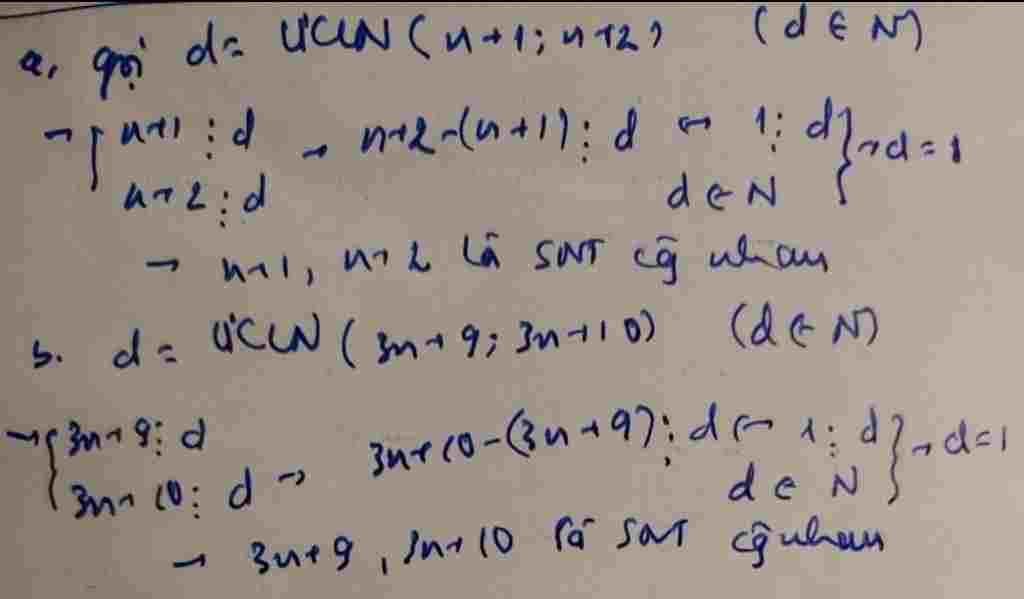 a, gọi d = ƯCLN (n+1; n+2) (d ∈ N)
→ { n+1 ⋮ d → n+2-(n+1) ⋮ d ↔ 1 ⋮ d } → d = 1
n+2 ⋮ d d ∈ N
→ n+1, n+2 là SNT cg nhau
b. d = ƯCLN (3n+9; 3n+10) (d ∈ N)
→ { 3n+9 ⋮ d → 3n+10-(3n+9) ⋮ d ↔ 1 ⋮ d } → d=1
3n+10 ⋮ d d ∈ N
→ 3n+9, 3n+10 là SNT cg nhau